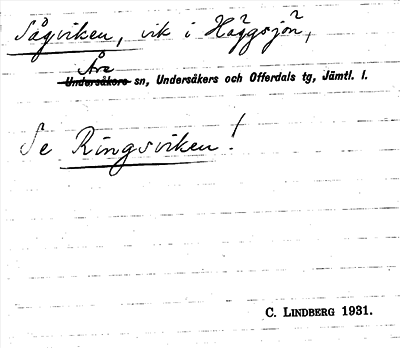 Sågviken, vik i Häggsjön,
Åre
Undersåkers sn, Undersåkers och Offerdals tg, Jämtl. l.
Se Ringsviken!
C. LINDBERG 1931.